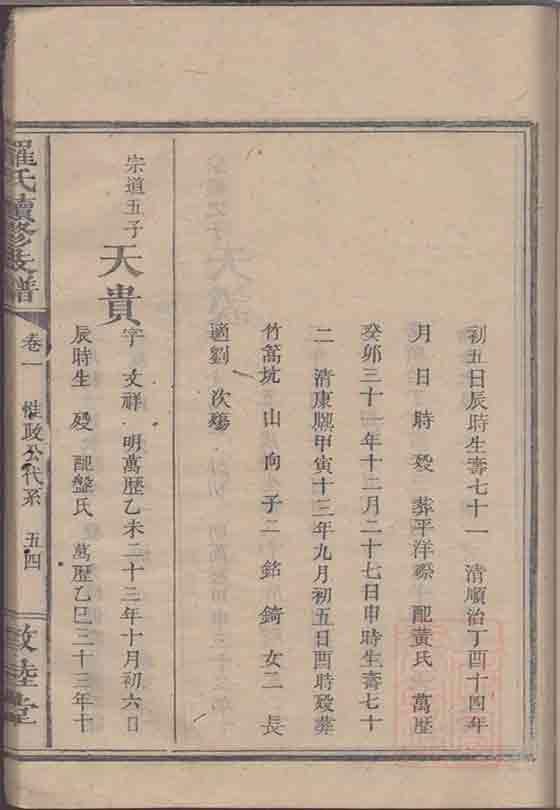 初五日辰時生壽七十一　清順治丁酉十四年
月　日　時歿　葬平洋㵎　配黃氏　萬歷
癸卯三十一年十二月二十七日申時生壽七十
二　清康熙甲寅十三年九月初五日酉時歿葬
竹篙坑　山　向子二　銘　錡　女二　長
適劉　次殤
宗道五子　天貴　字　文祥　明萬歷乙未二十三年十月初六日
辰時生　歿　配盤氏　萬歷乙巳三十三年十
羅氏續修支譜　卷一　惟政公代系　五四　敦睦堂